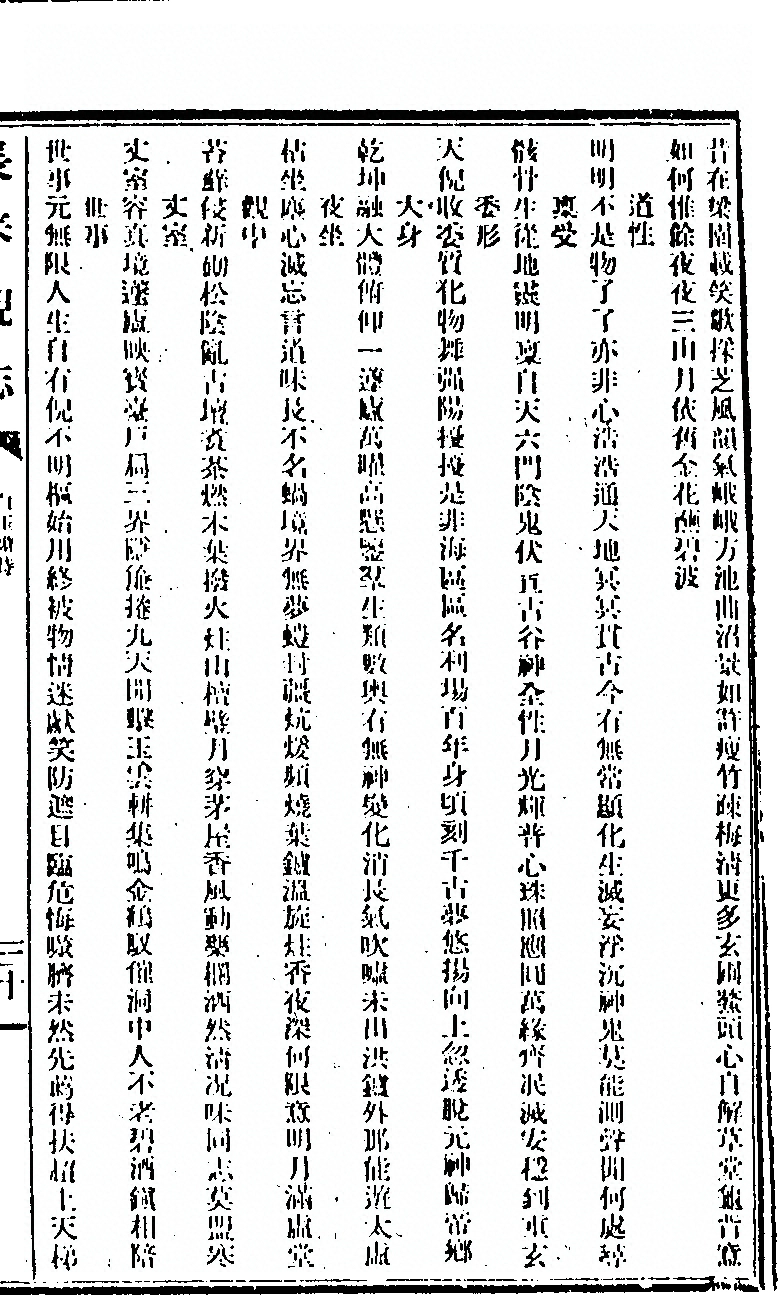 昔在梁園載笑歌採芝風韻氣峨峨方池曲沼景如許瘦竹疎梅清更多玄圃鰲頭心自解草堂龜背意
如何惟餘夜夜三山月依舊金花蘸碧波
道性
明明不是物了了亦非心浩浩通天地冥冥貫古今有無常顯化生滅妄浮沉神鬼莫能測聲聞何處尋
稟受
骸骨生從地靈明稟自天六門陰鬼伏亙古谷神全性月光輝普心珠照應圓萬緣齊泯滅安穩到重玄
委形
天倪收委質化物舞强陽擾擾是非海區區名利場百年身頃刻千古夢悠揚向上忽透脫元神歸帝鄉
大身
乾坤融大體俯仰一蘧廬萬曜高懸鑒羣生類數輿有無神變化消長氣吹噓未出洪鑪外那能遊太虛
夜坐
枯坐塵心滅忘言道味長不名蝸境界無夢螘封疆炕煖頻燒葉鑪溫旋炷香夜深何限意明月滿虛堂
觀中
苔蘚侵新砌松陰亂古壇煮茶燃木葉撥火炷山檀壁月穿茅屋香風動藥欄洒然清况味同志莫盟寒
丈室
丈室容真境蘧廬映寶臺戶扃三界隱帷捲九天開擊玉雲軿集鳴金鶴馭催洞中人不老碧酒鎮相陪
世事
世事元無限人生自有倪不明樞始用終被物情迷獻笑防遮目臨危悔噬臍未然先薦得扶超上天梯